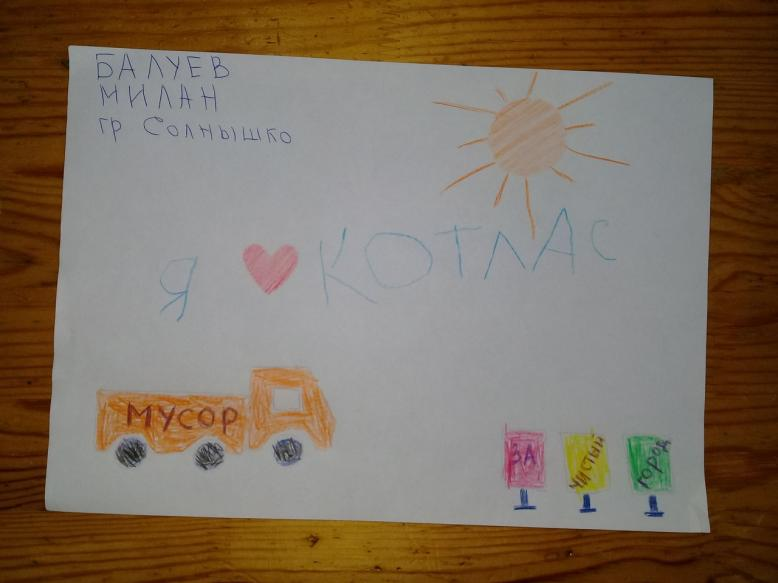 БАЛУЕВ
МИЛАН
гр Солнышко
Я КОТЛАС
МУСОР
ЗА ЧИСТЫЙ ГОРОД